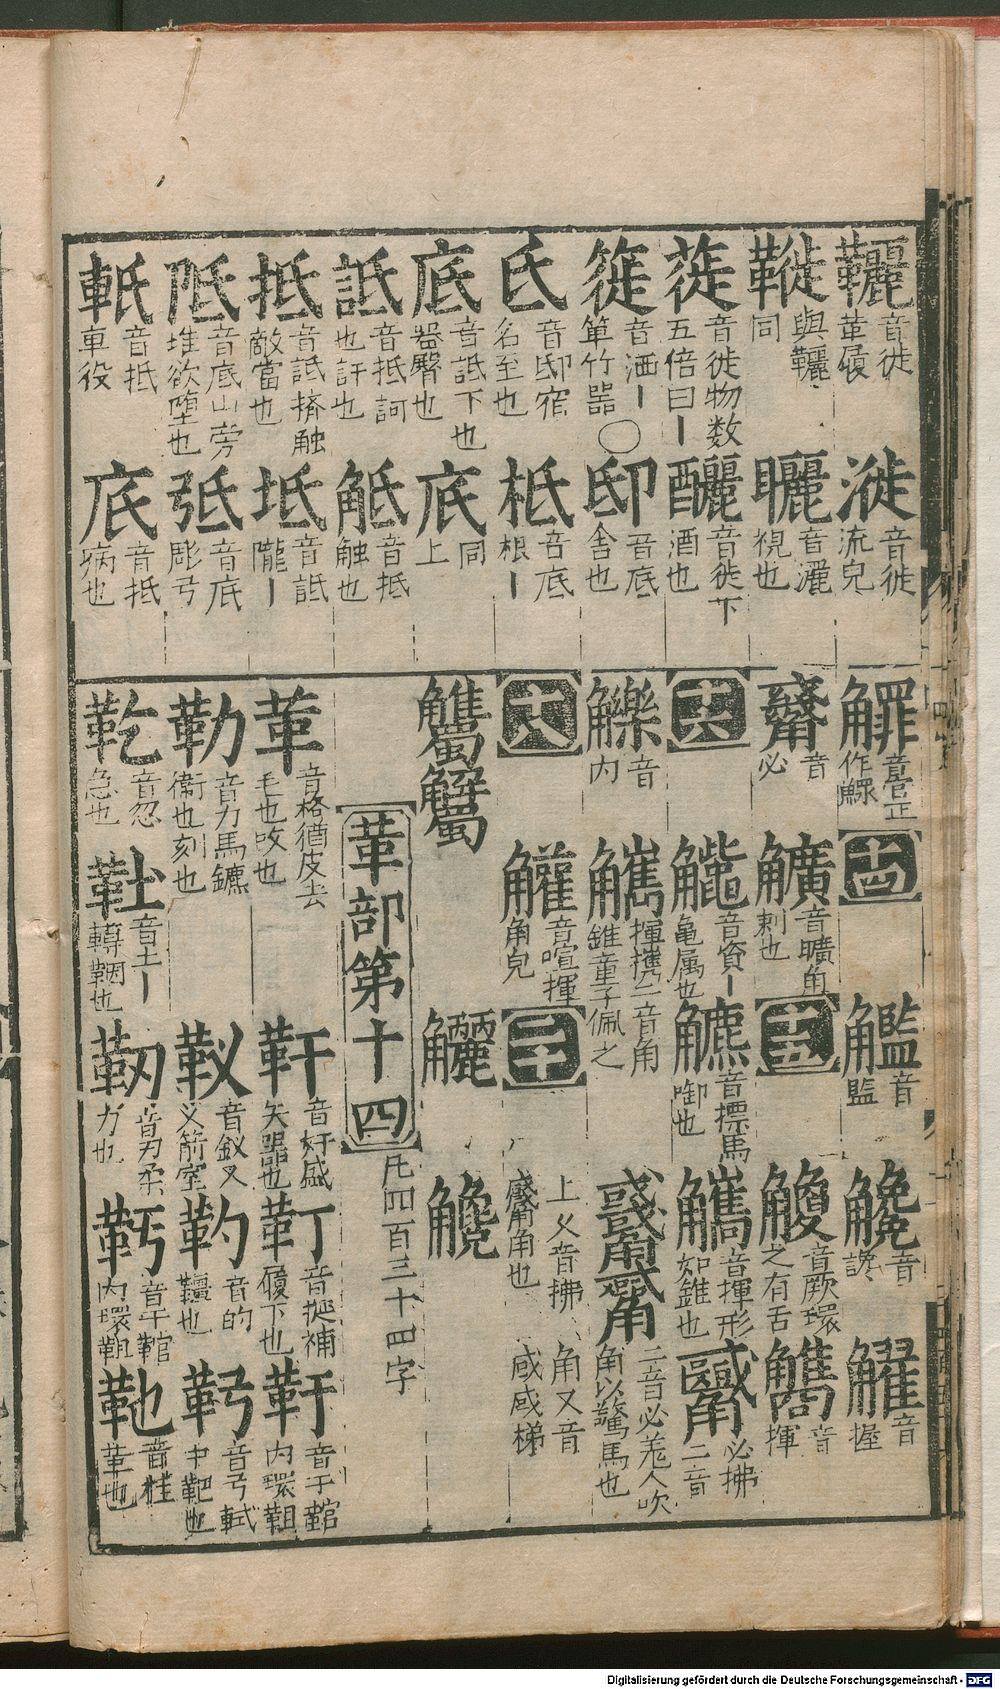 韆音徙革履
鞭與韆同
蓰音徙物数五倍曰丨
簁音洒丨箄竹器〇
氐音邸宿名至也
底音詆下也器臀也
詆音抵訶也訐也
抵音詆擠触敵當也
阺音底山旁堆欲墮也
軧音抵車役
漇音徙流皃
曬音灑視也
釃音徙下酒也
邸音底舍也
柢音底根丨
底同上
觝音抵触也
坻音詆隴丨
弤音底彫弓
疧音抵病也
音正作鰥
十四
音監
音讒
音握
音必
音曠角剌也
十五
音厥環之有舌
音揮
十六
音資丨亀属也
音摽馬啣也
音揮形如錐也
必拂二音
音内
揮攜二音角錐童子佩之
二音必羗人吹角以驚馬也
十八
音喧揮角皃
二十
上乂音拂角又音
革部第十四 凡四百三十四字
革音格猶皮去毛也改也
靬音奸盛矢噐也
靪音挺補履下也
靬音干館内環靼
勒音力馬鑣銜也刻也
靫音釵又义箭室
靮音的韁也
音弓軾中靶也
音忽急也
靯音土丨轉鞇也
靭音刃柔力也
音于館内環靼
音桂革也
Digitalisierung gefördert durch die Deutsche Forschungsgemeinschaft - DFG